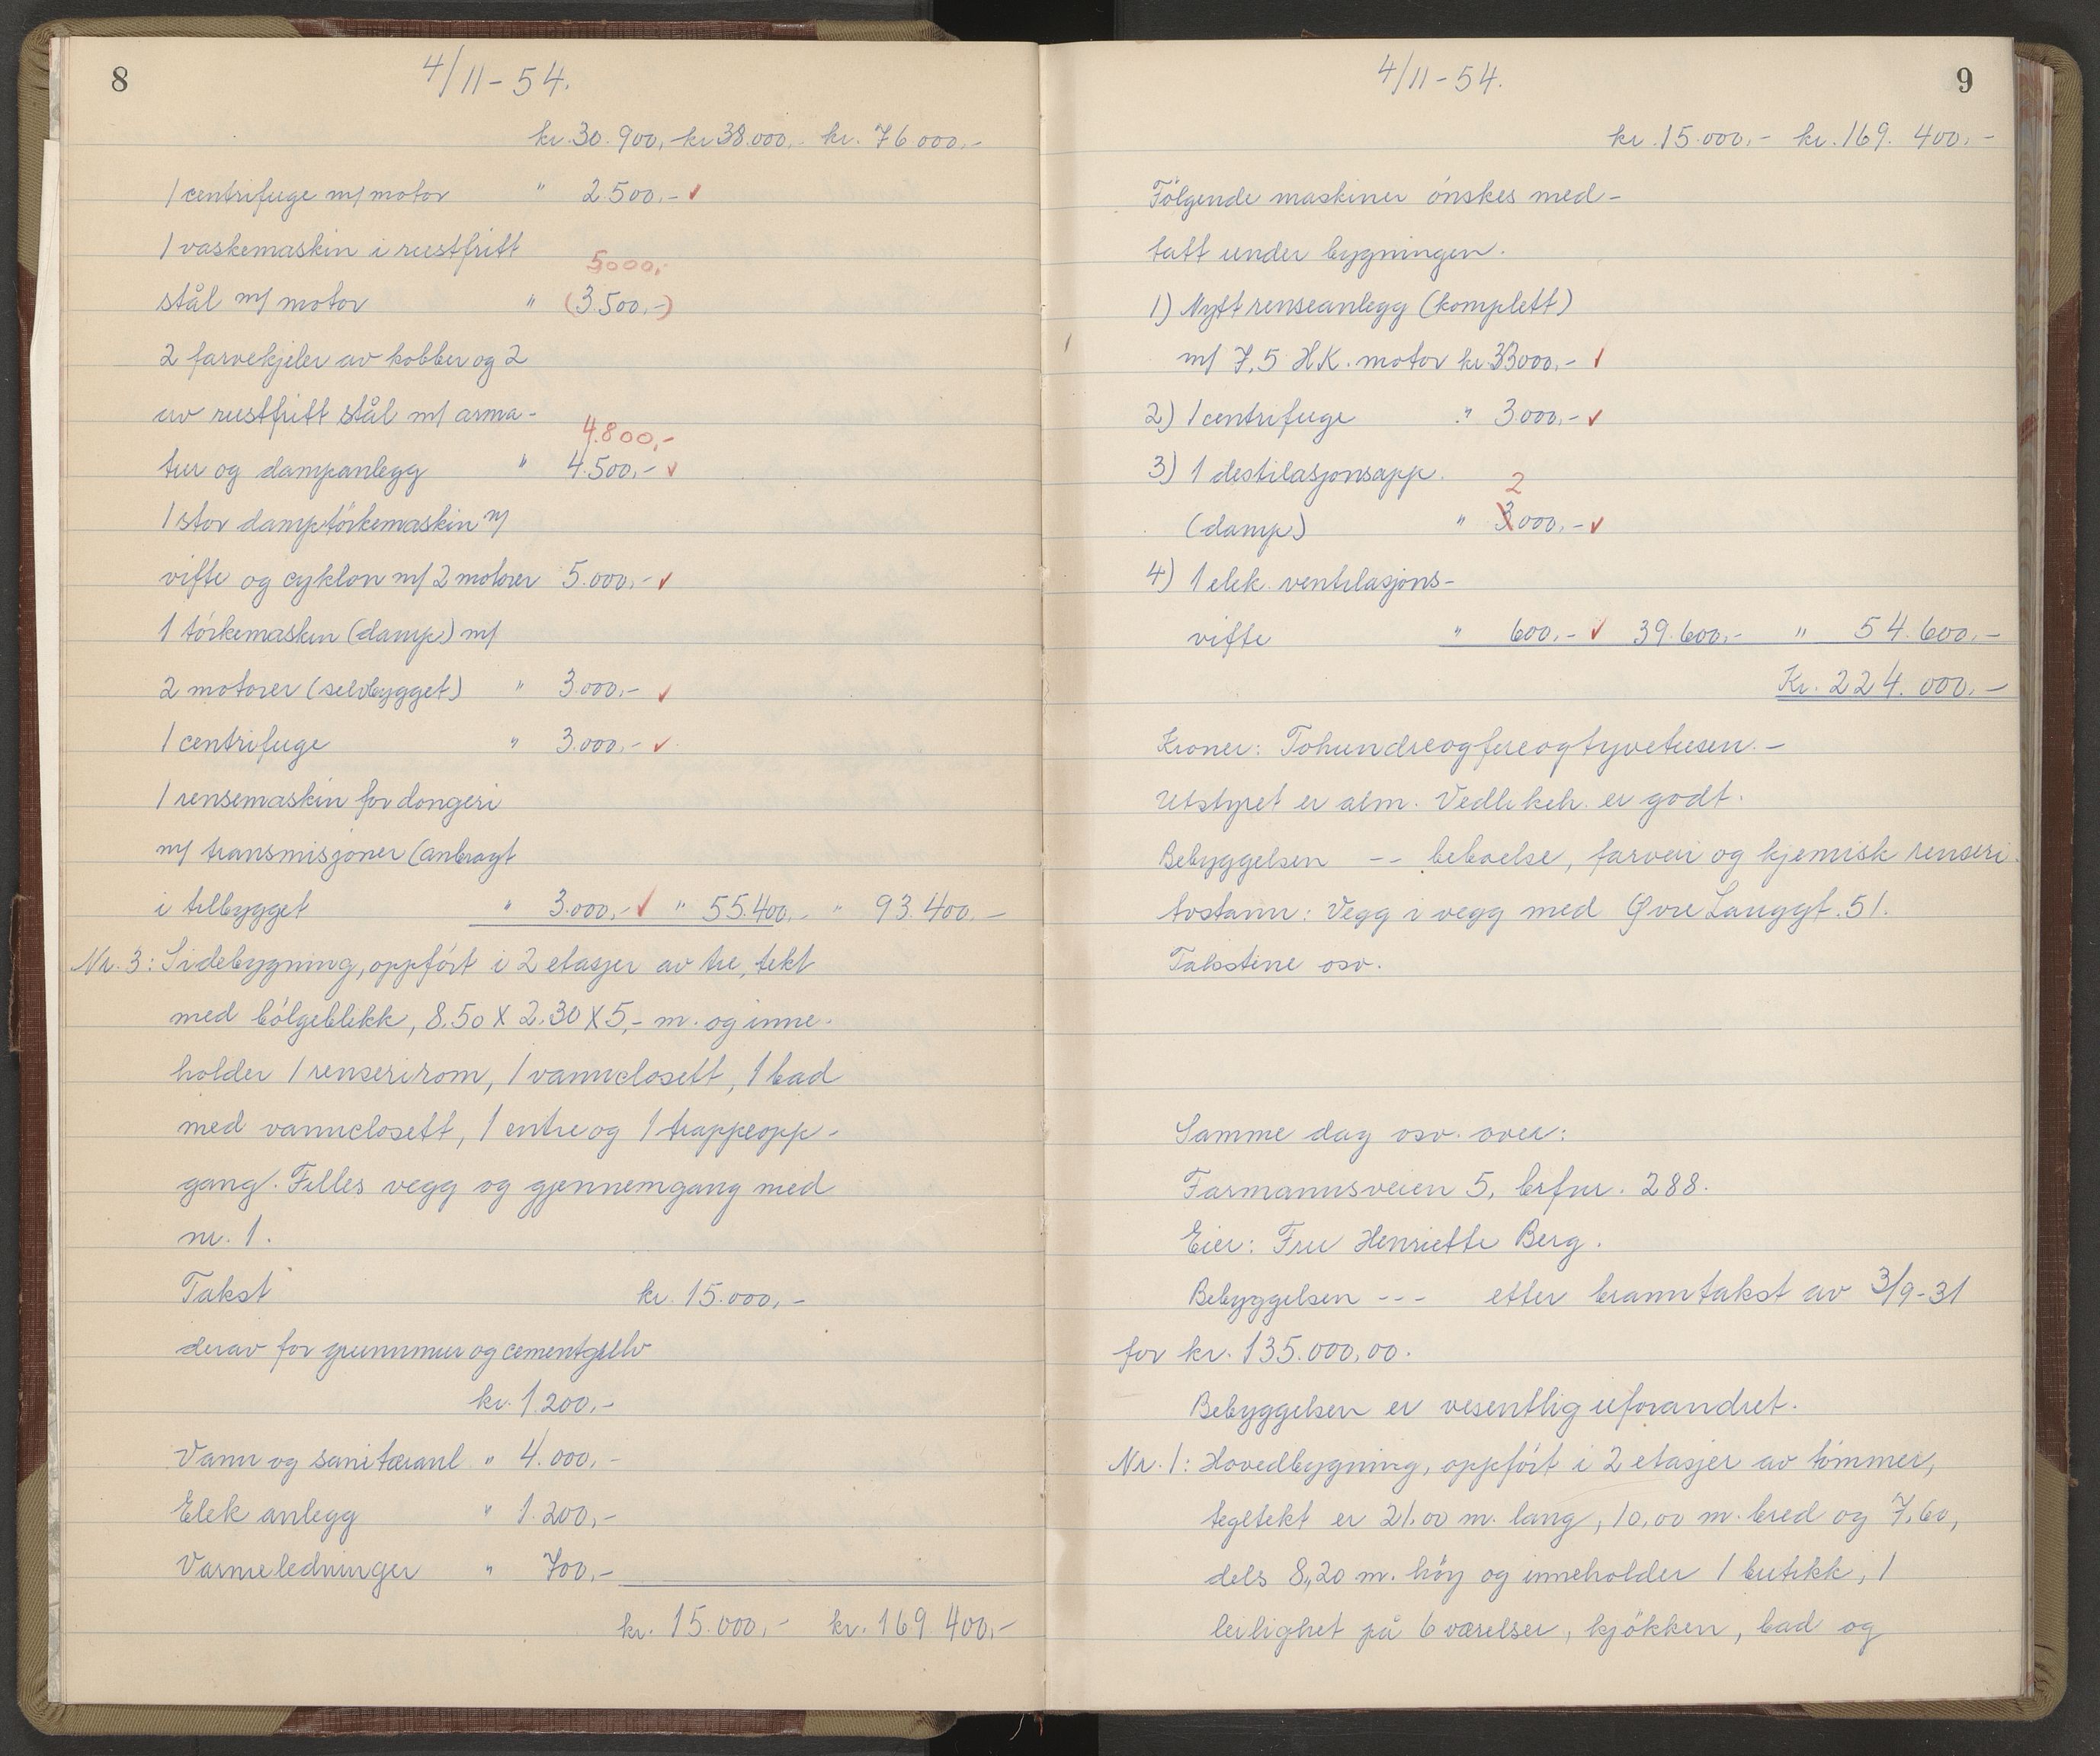 8
4/11-54.
kr. 30.900,- kr 38.000,- kr. 76000.-
1 centrifuge m/ motor " 2.500,- ✓
1 vaskemaskin i rustfritt
5000,-
stål m/ motor " (3.500,-)
2 farvekjeler av kobber og 2
av rustfritt stål m/ arma-
4.800,-
tur og dampanlegg " 4.500,- ✓
1 stor damptörkemaskin m/
vifte og cyklon m/ 2 motorer 5.000,- ✓
1 törkemaskin (damp) m/
2 motorer (selvbygget) " 3.000,- ✓
1 centrifuge " 3.000,- ✓
1 rensemaskin for dongeri
m/ transmisjoner (anbragt
i tilbygget " 3.000,- ✓ " 55.400,- " 93.400,-
Nr. 3: Sidebygning, oppfört i 2 etasjer av tre, tekt
med bölgeblikk, 8.50 X 2.30 X 5,- m. og inne-
holder 1 renserirom, 1 vannclosett, 1 bad
med vannclosett, 1 entre og 1 trappeopp-
gang. Felles vegg og gjennemgang med
nr. 1.
Takst kr. 15.000,-
derav for grunnmur og cementgulv
kr. 1.200,-
Vann og sanitæranl " 4.000,-
Elek anlegg " 1.200,-
Varmeledninger " 700,-
kr. 15.000,- kr. 169.400,-
4/11-54.
9
kr. 15.000,- kr. 169.400,-
Fölgende maskiner önskes med-
tatt under bygningen.
1) Nytt renseanlegg (komplett)
m/ 7,5 HK. motor kr. 33000,- ✓
2) 1 centrifuge " 3.000,- ✓
3) 1 destilasjonsapp.
2
(damp) " 3.000,- ✓
4) 1 elek. ventilasjons-
vifte " 600,- ✓ 39.600,- " 54.600,-
Kr. 224.000,-
Kroner: Tohundreogfireogtyvetusen.-
Utstyret er alm. Vedlikeh. er godt.
Bebyggelsen -- beboelse, farveri og kjemisk renseri.
Avstann: Vegg i vegg med Øvre Langgt. 51.
Takstene osv.
Samme dag osv. over:
Farmannsveien 5, brfnr. 288.
Eier: Fru Henriette Berg.
Bebyggelsen --- etter branntakst av 3/9-31
for kr. 135.000,00.
Bebyggelsen er vesentlig uforandret.
Nr. 1: Hovedbygning, oppfört i 2 etasjer av tömmer,
tegltekt er 21.00 m. lang, 10,00 m. bred og 7,60,
dels 8,20 m. höy og inneholder 1 butikk, 1
leilighet på 6 værelser, kjökken, bad og